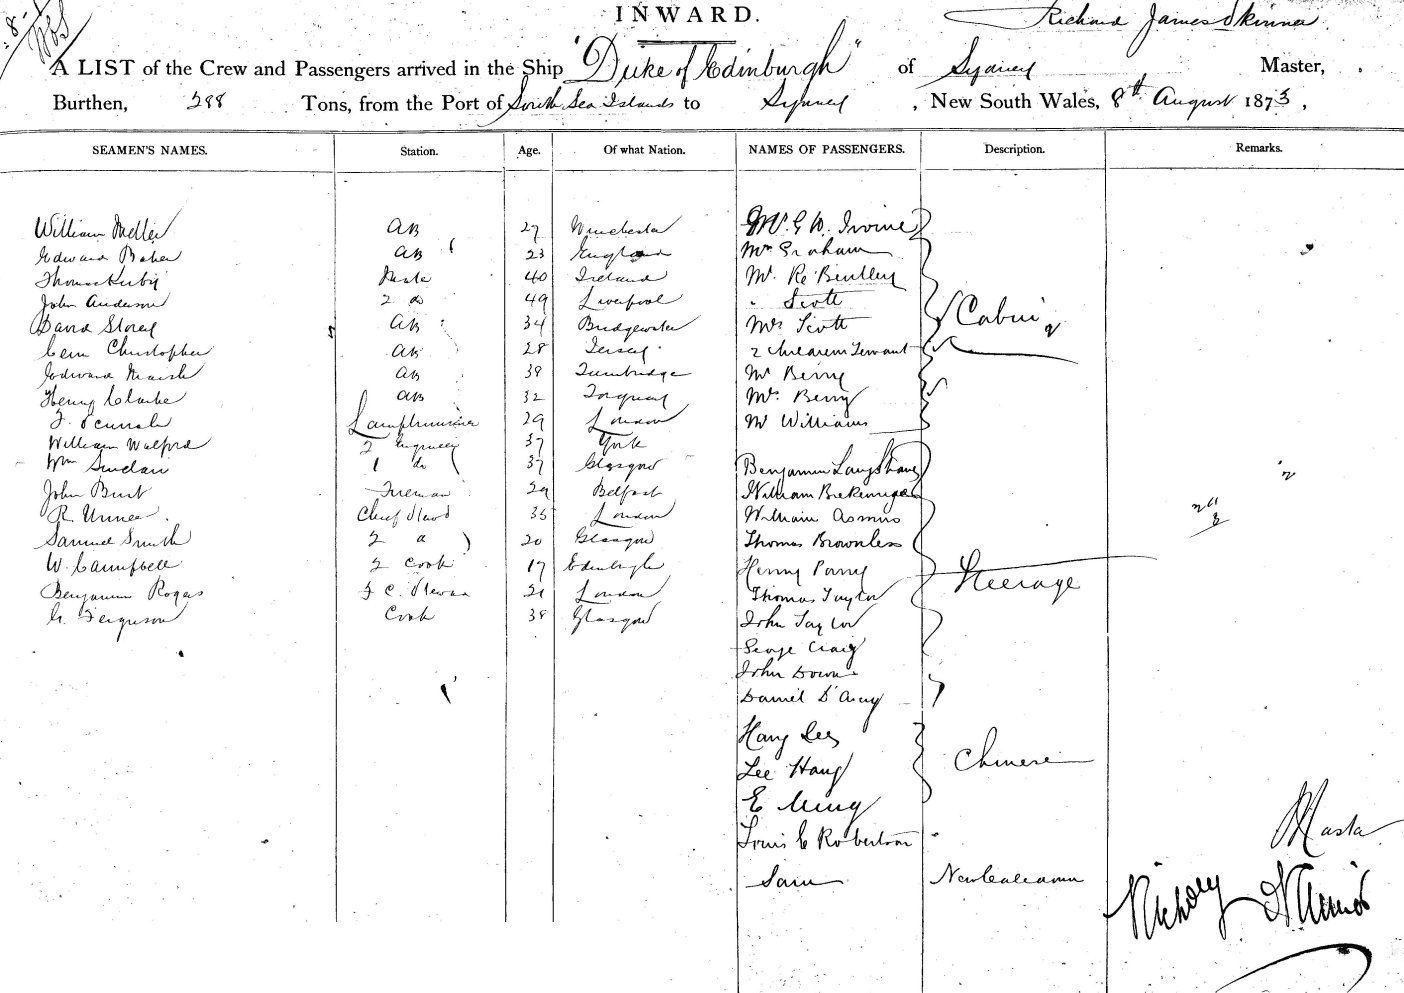 INWARD.
Richard James Skinner
A LIST of the Crew and Passengers arrived in the Ship "Duke of Edinburgh" of Sydney Master,
Burthen, 288 Tons, from the Port of South Sea Islands to Sydney, New South Wales, 8th August 1873,
SEAMEN'S NAMES. Station. Age. Of what Nation. NAMES OF PASSENGERS. Description. Remarks.
William AB 27 Winchester Mr. G W. Irvine
Edward Baker AB 23 England Mr Graham
Thomas Kirby Mate 40 Ireland Mr. Bentley
John Anderson 2 do 49 Liverpool " Scott Cabin
David Storey AB 34 Bridgewater Mrs Scott
Christopher AB 28 Jersey 2 children Servant
Edward Marsh AB 38 Tunbridge Mr Berry
Henry Clarke AB 32 Torquay Mrs. Berry
F. Lamptrimmer 29 London Mr Williams
William Walford 2 Engineer 37 York
Wm Sinclair 1 do 37 Glasgow Benjamin
John Burt Fireman 29 Belfast William
R. Chief Stewd 35 London William Asmus
Samuel Smith 2 d 20 Glasgow Thomas Brownless
W. Campbell 2 Cook 17 Edinburgh Henry Parry Steerage
Benjamin Rogers 21 London Thomas Taylor
G. Ferguson Cook 38 Glasgow John Taylor
George Craig
John Down
Daniel D'Arcy
Hang Lee
Lee Hang Chinese
E Ming
Louis C Robertson
Master
Sam New Caledonia